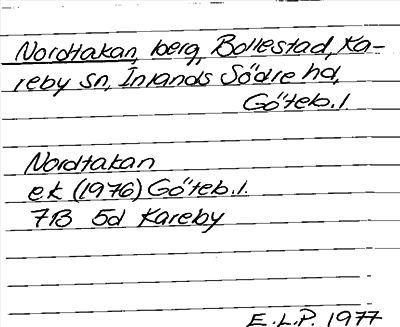 Nordtakan, berg, Bollestad, Ka-
reby sn, Inlands Södre hd,
Göteb. l
Nordtakan
ek (1976) Göteb. l.
7B 5d Kareby
E.L.P. 1977